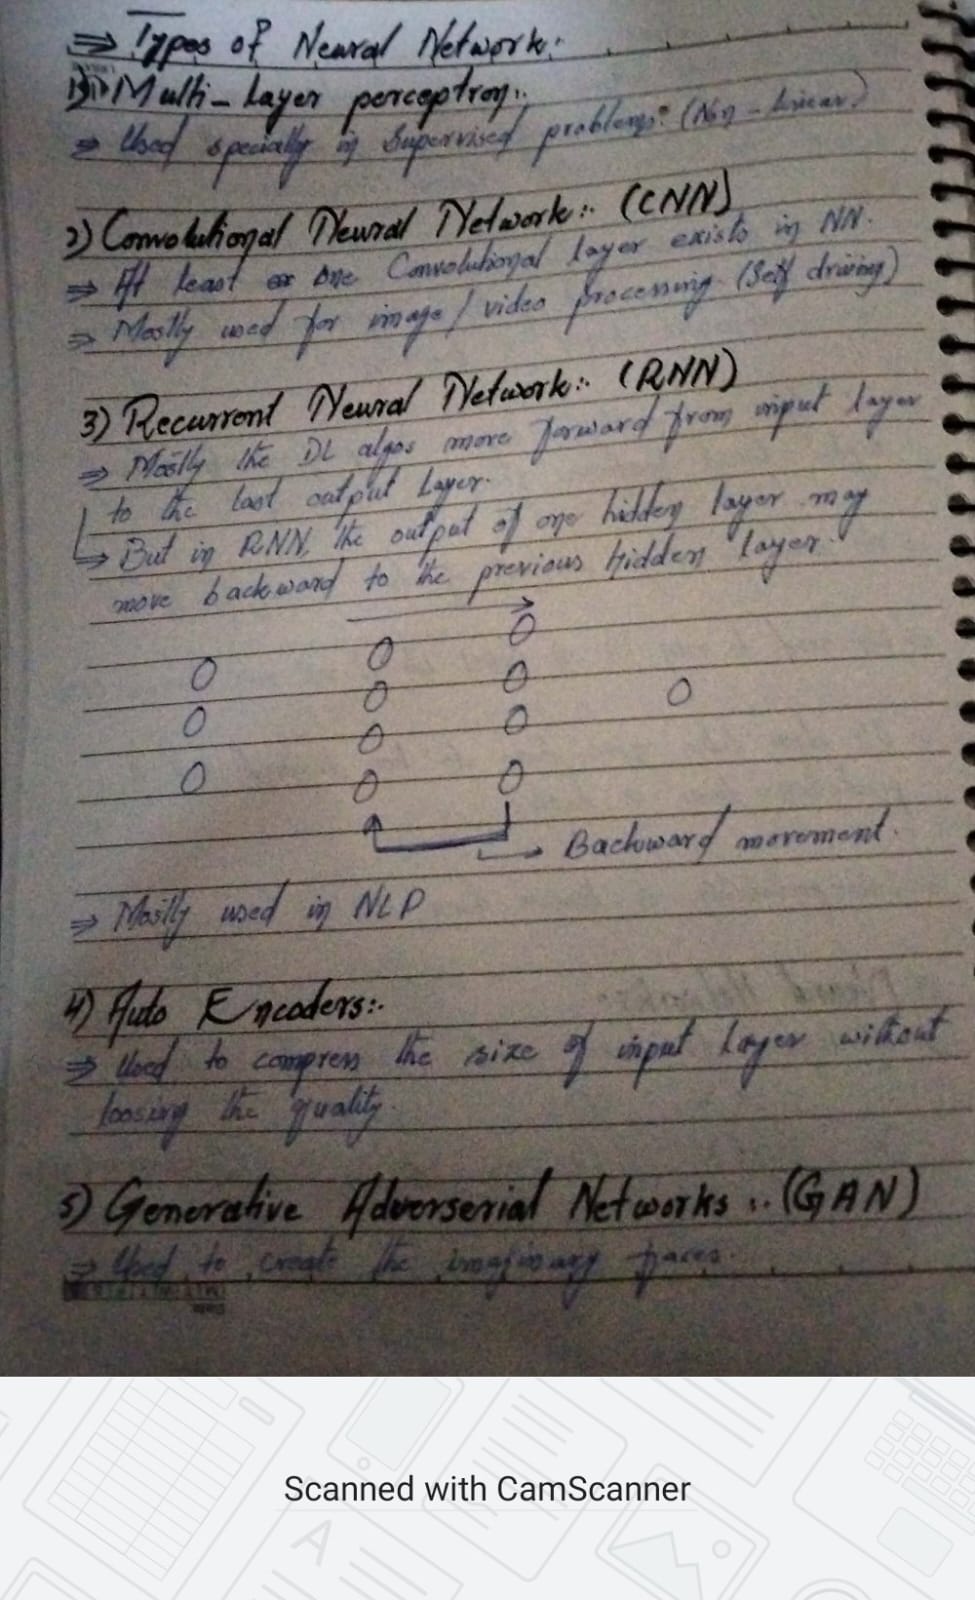 ⇒ Types of Neural Network:
1) Multi-Layer perceptron:.
⇒ Used specially in Supervised problems: (Non-linear)
2) Convolutional Neural Network:. (CNN)
⇒ At least one Convolutional layer exists in NN.
⇒ Mostly used for image/video processing. (Self driving)
3) Recurrent Neural Network:. (RNN)
⇒ Mostly the DL algos move forward from input layer
to the last output Layer.
→ But in RNN, the output of one hidden layer may
move backward to the previous hidden layer.
→ Backward movement.
⇒ Mostly used in NLP
4) Auto Encoders:.
⇒ Used to compress the size of input Layer without
loosing the quality.
5) Generative Adverserial Networks:. (GAN)
⇒ Used to create the imaginary faces.
Scanned with CamScanner